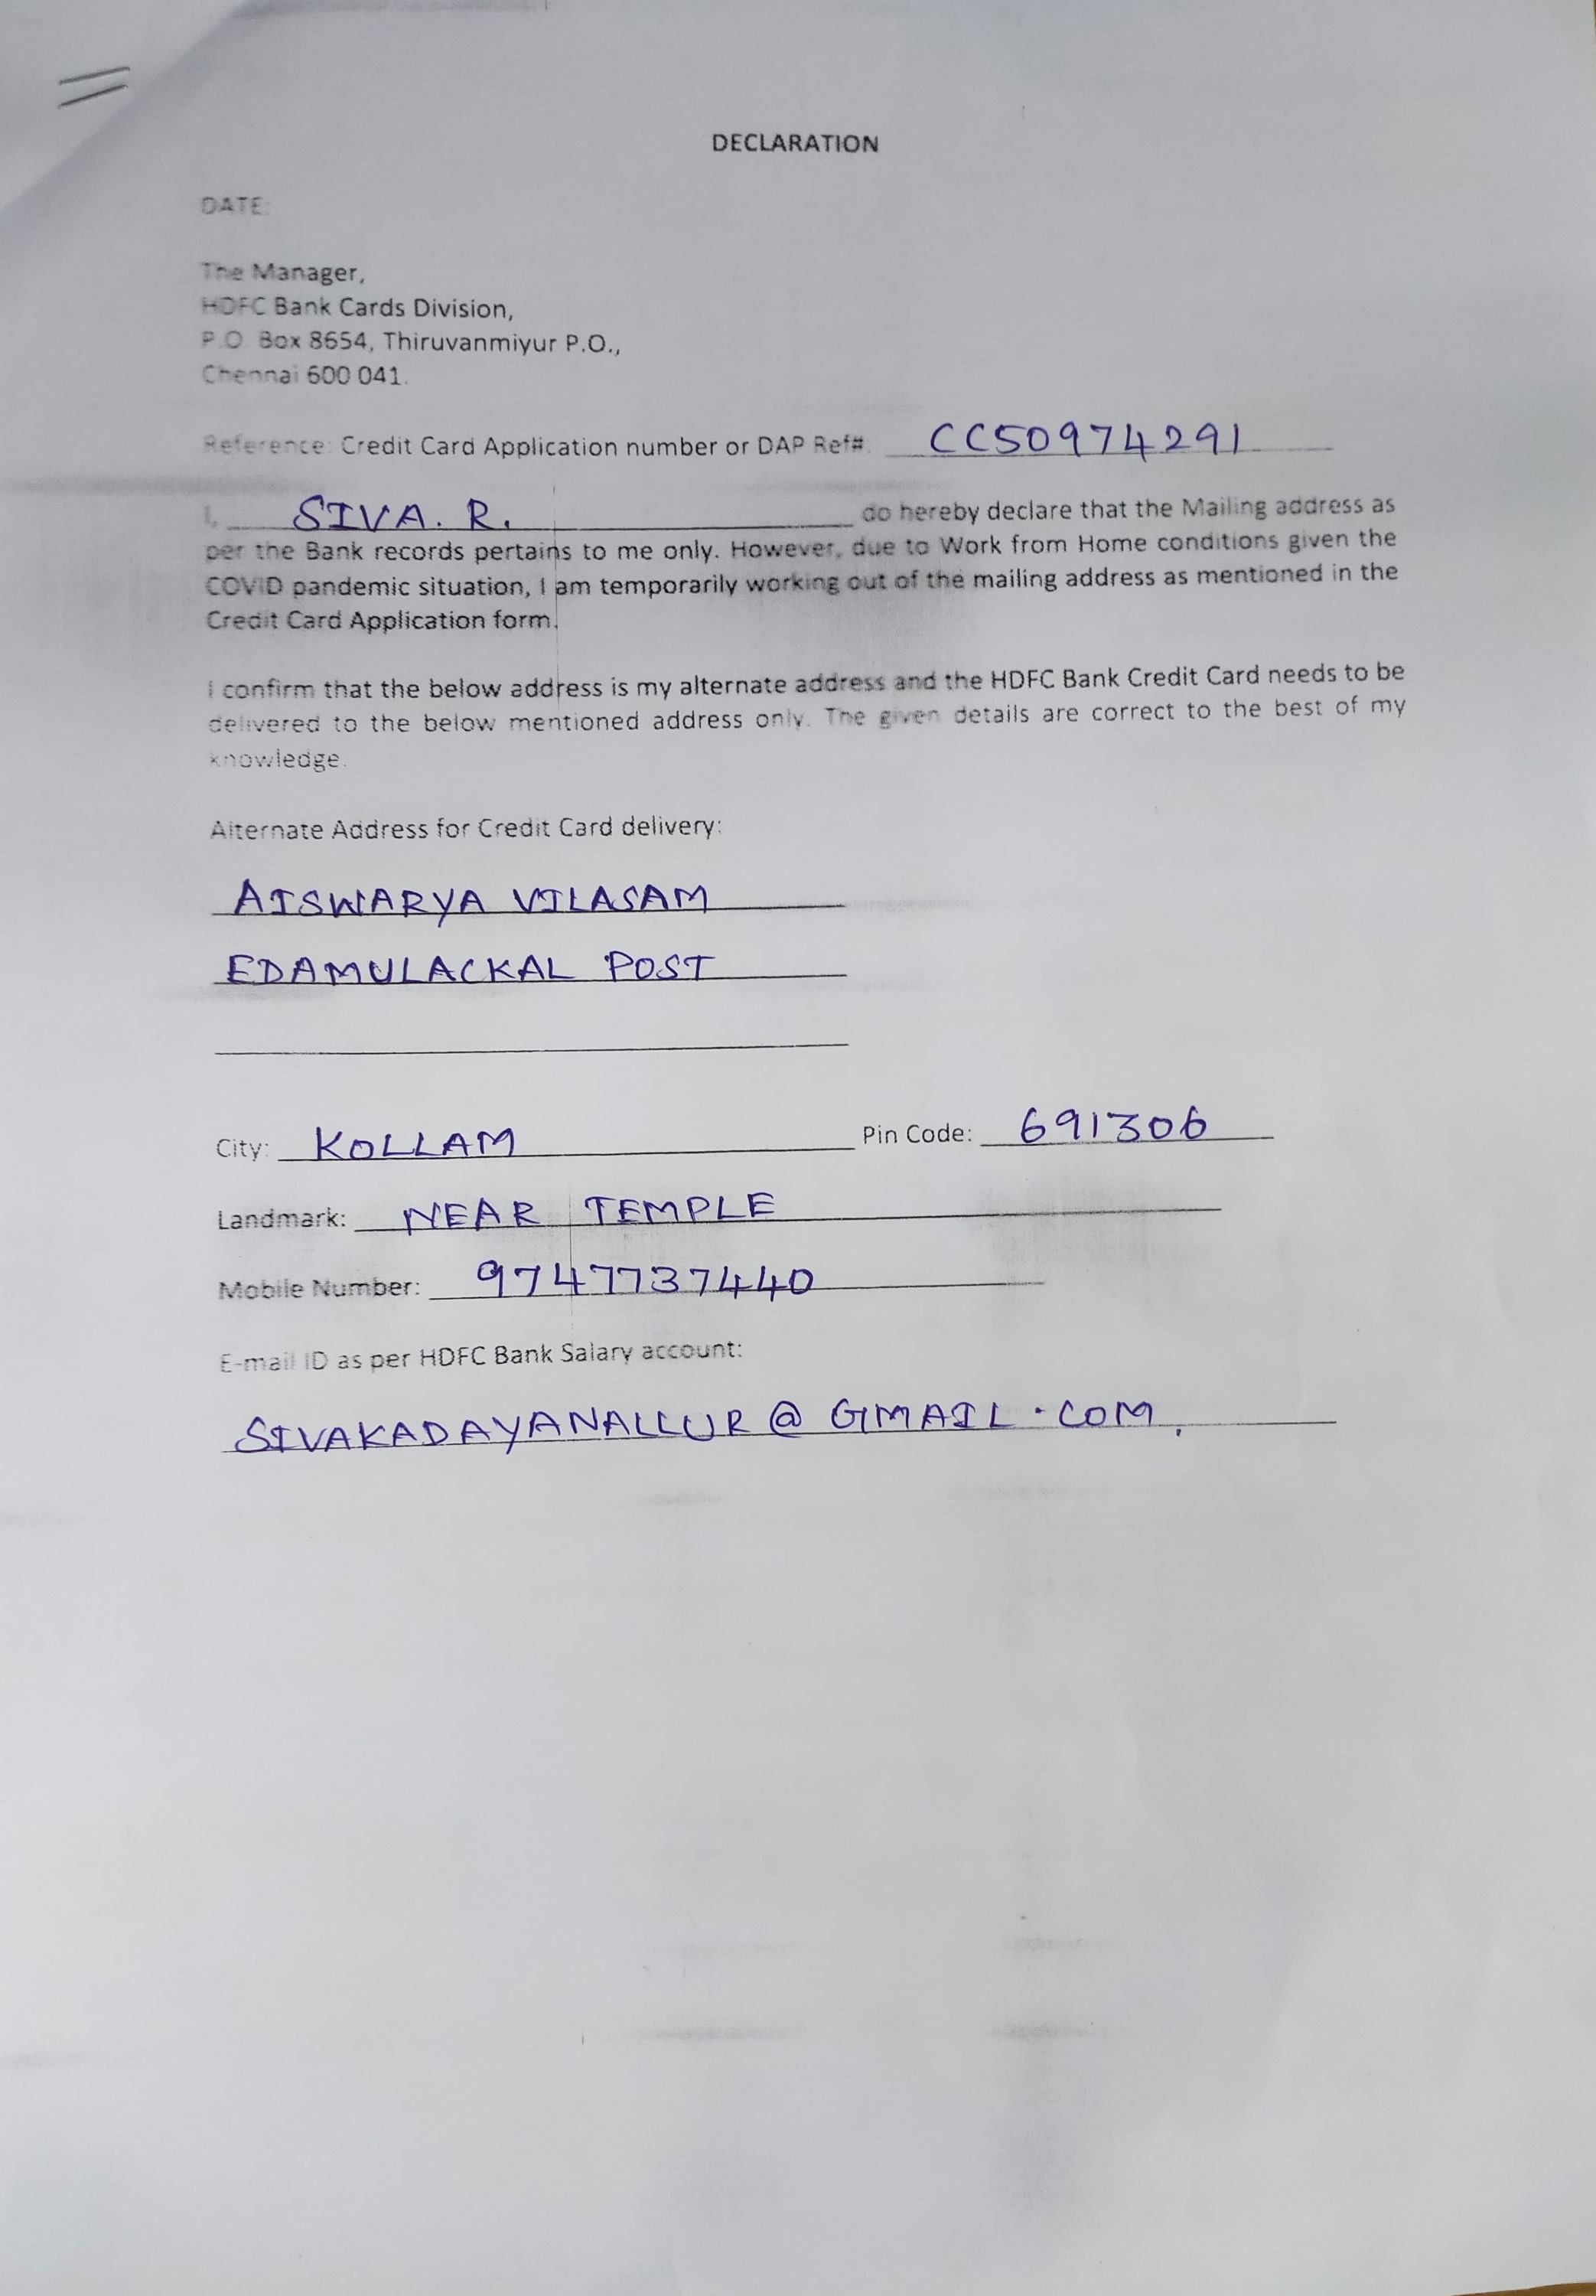 DECLARATION
DATE:
The Manager,
HDFC Bank Cards Division,
P.O. Box 8654, Thiruvanmiyur P.O.,
Chennai 600 041.
Reference: Credit Card Application number or DAP Ref#. CC50974291
I, SIVA. R. do hereby declare that the Mailing address as
per the Bank records pertains to me only. However, due to Work from Home conditions given the
COVID pandemic situation, I am temporarily working out of the mailing address as mentioned in the
Credit Card Application form.
I confirm that the below address is my alternate address and the HDFC Bank Credit Card needs to be
delivered to the below mentioned address only. The given details are correct to the best of my
knowledge.
Alternate Address for Credit Card delivery:
AISWARYA VILASAM
EDAMULACKAL POST
City: KOLLAM Pin Code: 691306
Landmark: NEAR TEMPLE
Mobile Number: 9747737440
E-mail ID as per HDFC Bank Salary account:
SIVAKADAYANALLUR@GMAIL.COM.